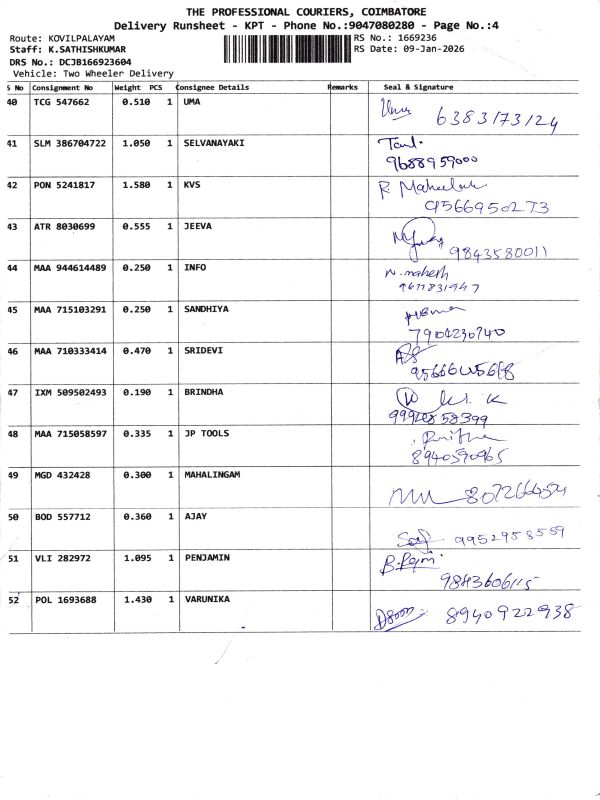 THE PROFESSIONAL COURIERS, COIMBATORE
Delivery Runsheet - KPT - Phone No.:9047080280 - Page No.:4
Route: KOVILPALAYAM RS No.: 1669236
Staff: K.SATHISHKUMAR RS Date: 09-Jan-2026
DRS No.: DCJB166923604
Vehicle: Two Wheeler Delivery
S No Consignment No Weight PCS Consignee Details Remarks Seal & Signature
40 TCG 547662 0.510 1 UMA Uma 6383173124
41 SLM 386704722 1.050 1 SELVANAYAKI
9688959000
42 PON 5241817 1.580 1 KVS R
9566950273
43 ATR 8030699 0.555 1 JEEVA 9843580011
44 MAA 944614489 0.250 1 INFO N.mahesh
9677831947
45 MAA 715103291 0.250 1 SANDHIYA
7904230740
46 MAA 710333414 0.470 1 SRIDEVI
47 IXM 509502493 0.190 1 BRINDHA
48 MAA 715058597 0.335 1 JP TOOLS
8940590965
49 MGD 432428 0.300 1 MAHALINGAM
50 BOD 557712 0.360 1 AJAY 9952958559
51 VLI 282972 1.095 1 PENJAMIN
9843606115
52 POL 1693688 1.430 1 VARUNIKA 8940922938